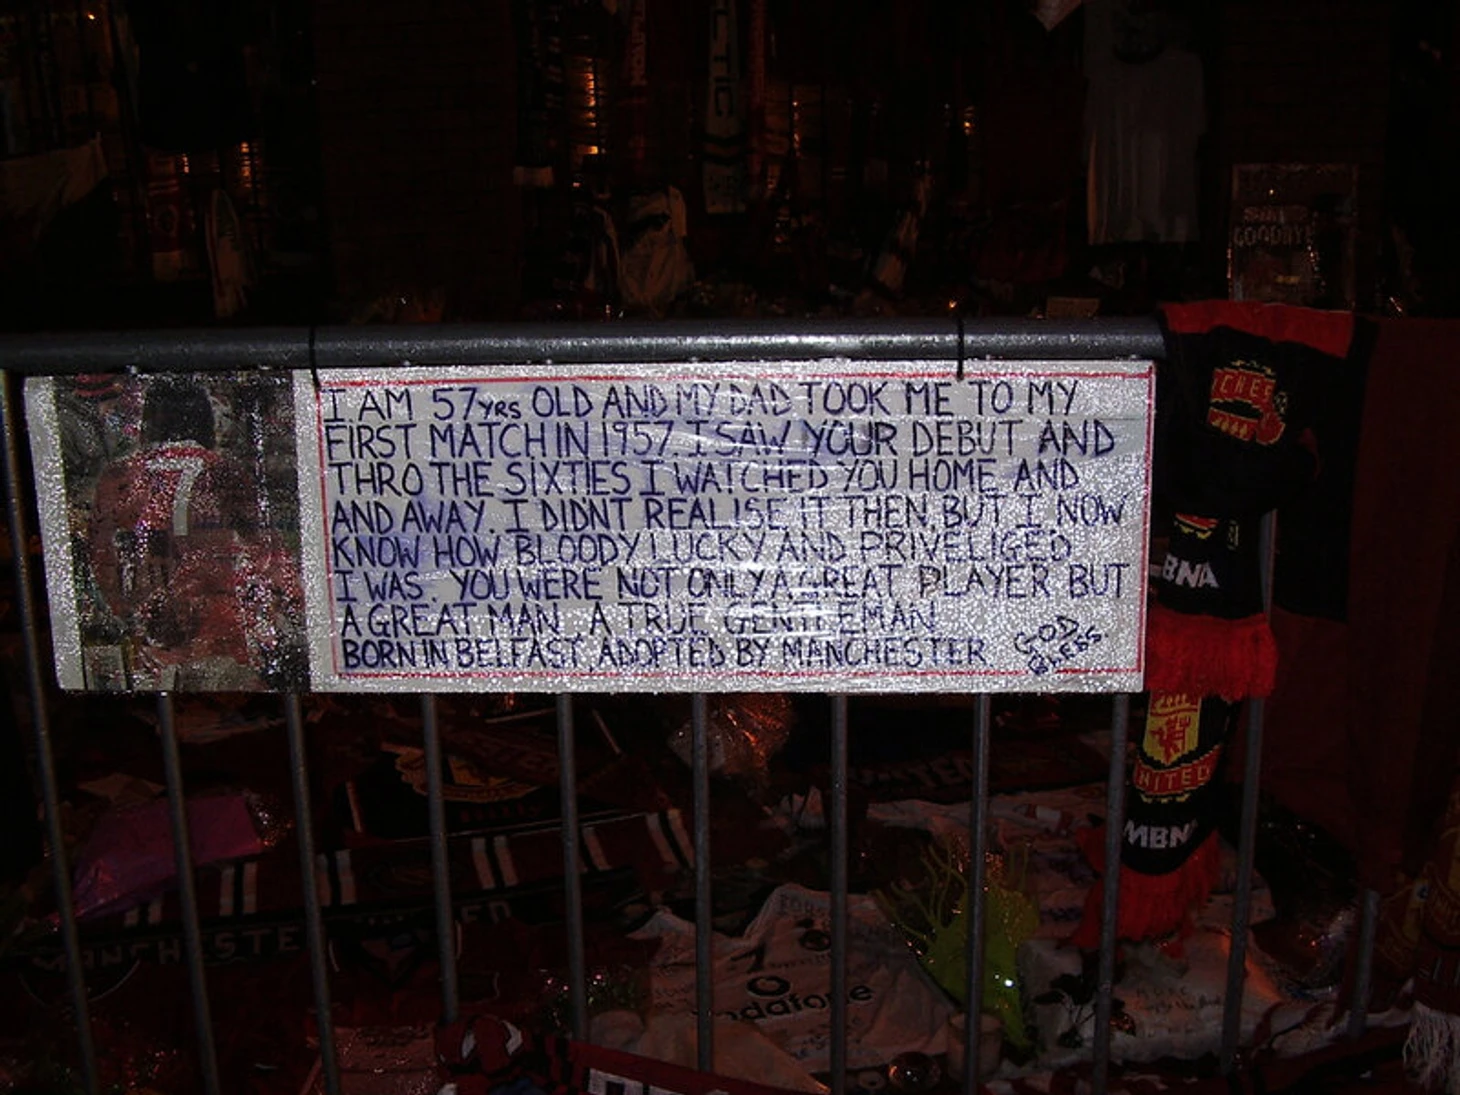 LTIC
SAY
GOODBYE
I AM 57YRS OLD AND MY DAD TOOK ME TO MY
FIRST MATCH IN 1957. I SAW YOUR DEBUT AND
THRO THE SIXTIES I WATCHED YOU HOME AND
AND AWAY. I DIDNT REALISE IT THEN, BUT I NOW
KNOW HOW BLOODY LUCKY AND PRIVELIGED
I WAS. YOU WERE NOT ONLY A GREAT PLAYER BUT
A GREAT MAN. A TRUE GENTLEMAN
BORN IN BELFAST, ADOPTED BY MANCHESTER
GOD
BLESS.
7
CHES
BNA
NITED
MBN
MANCHESTE
vodafone